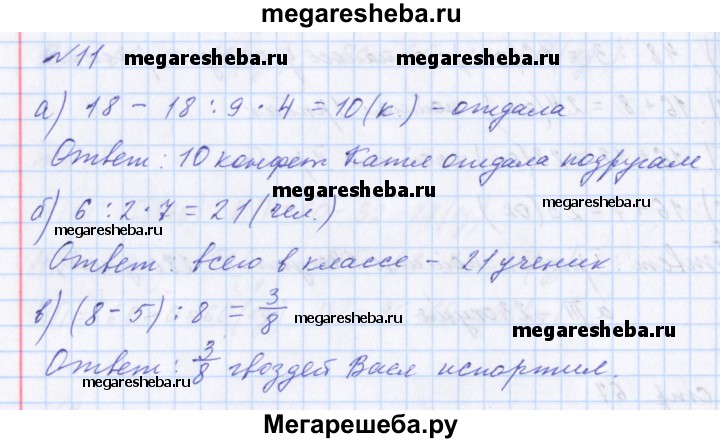 megaresheba.ru
№11
megaresheba.ru megaresheba.ru
а) 18 - 18 : 9 · 4 = 10 (к.) - отдала
Ответ: 10 конфет Катя отдала подругам
megaresheba.ru megaresheba.ru
б) 6 : 2 · 7 = 21 (чел.)
megaresheba.ru
Ответ: всего в классе - 21 ученик.
в) (8 - 5) : 8 = 3/8
megaresheba.ru megaresheba.ru
Ответ: 3/8 гвоздей Вася испортил.
megaresheba.ru
Мегарешеба.ру